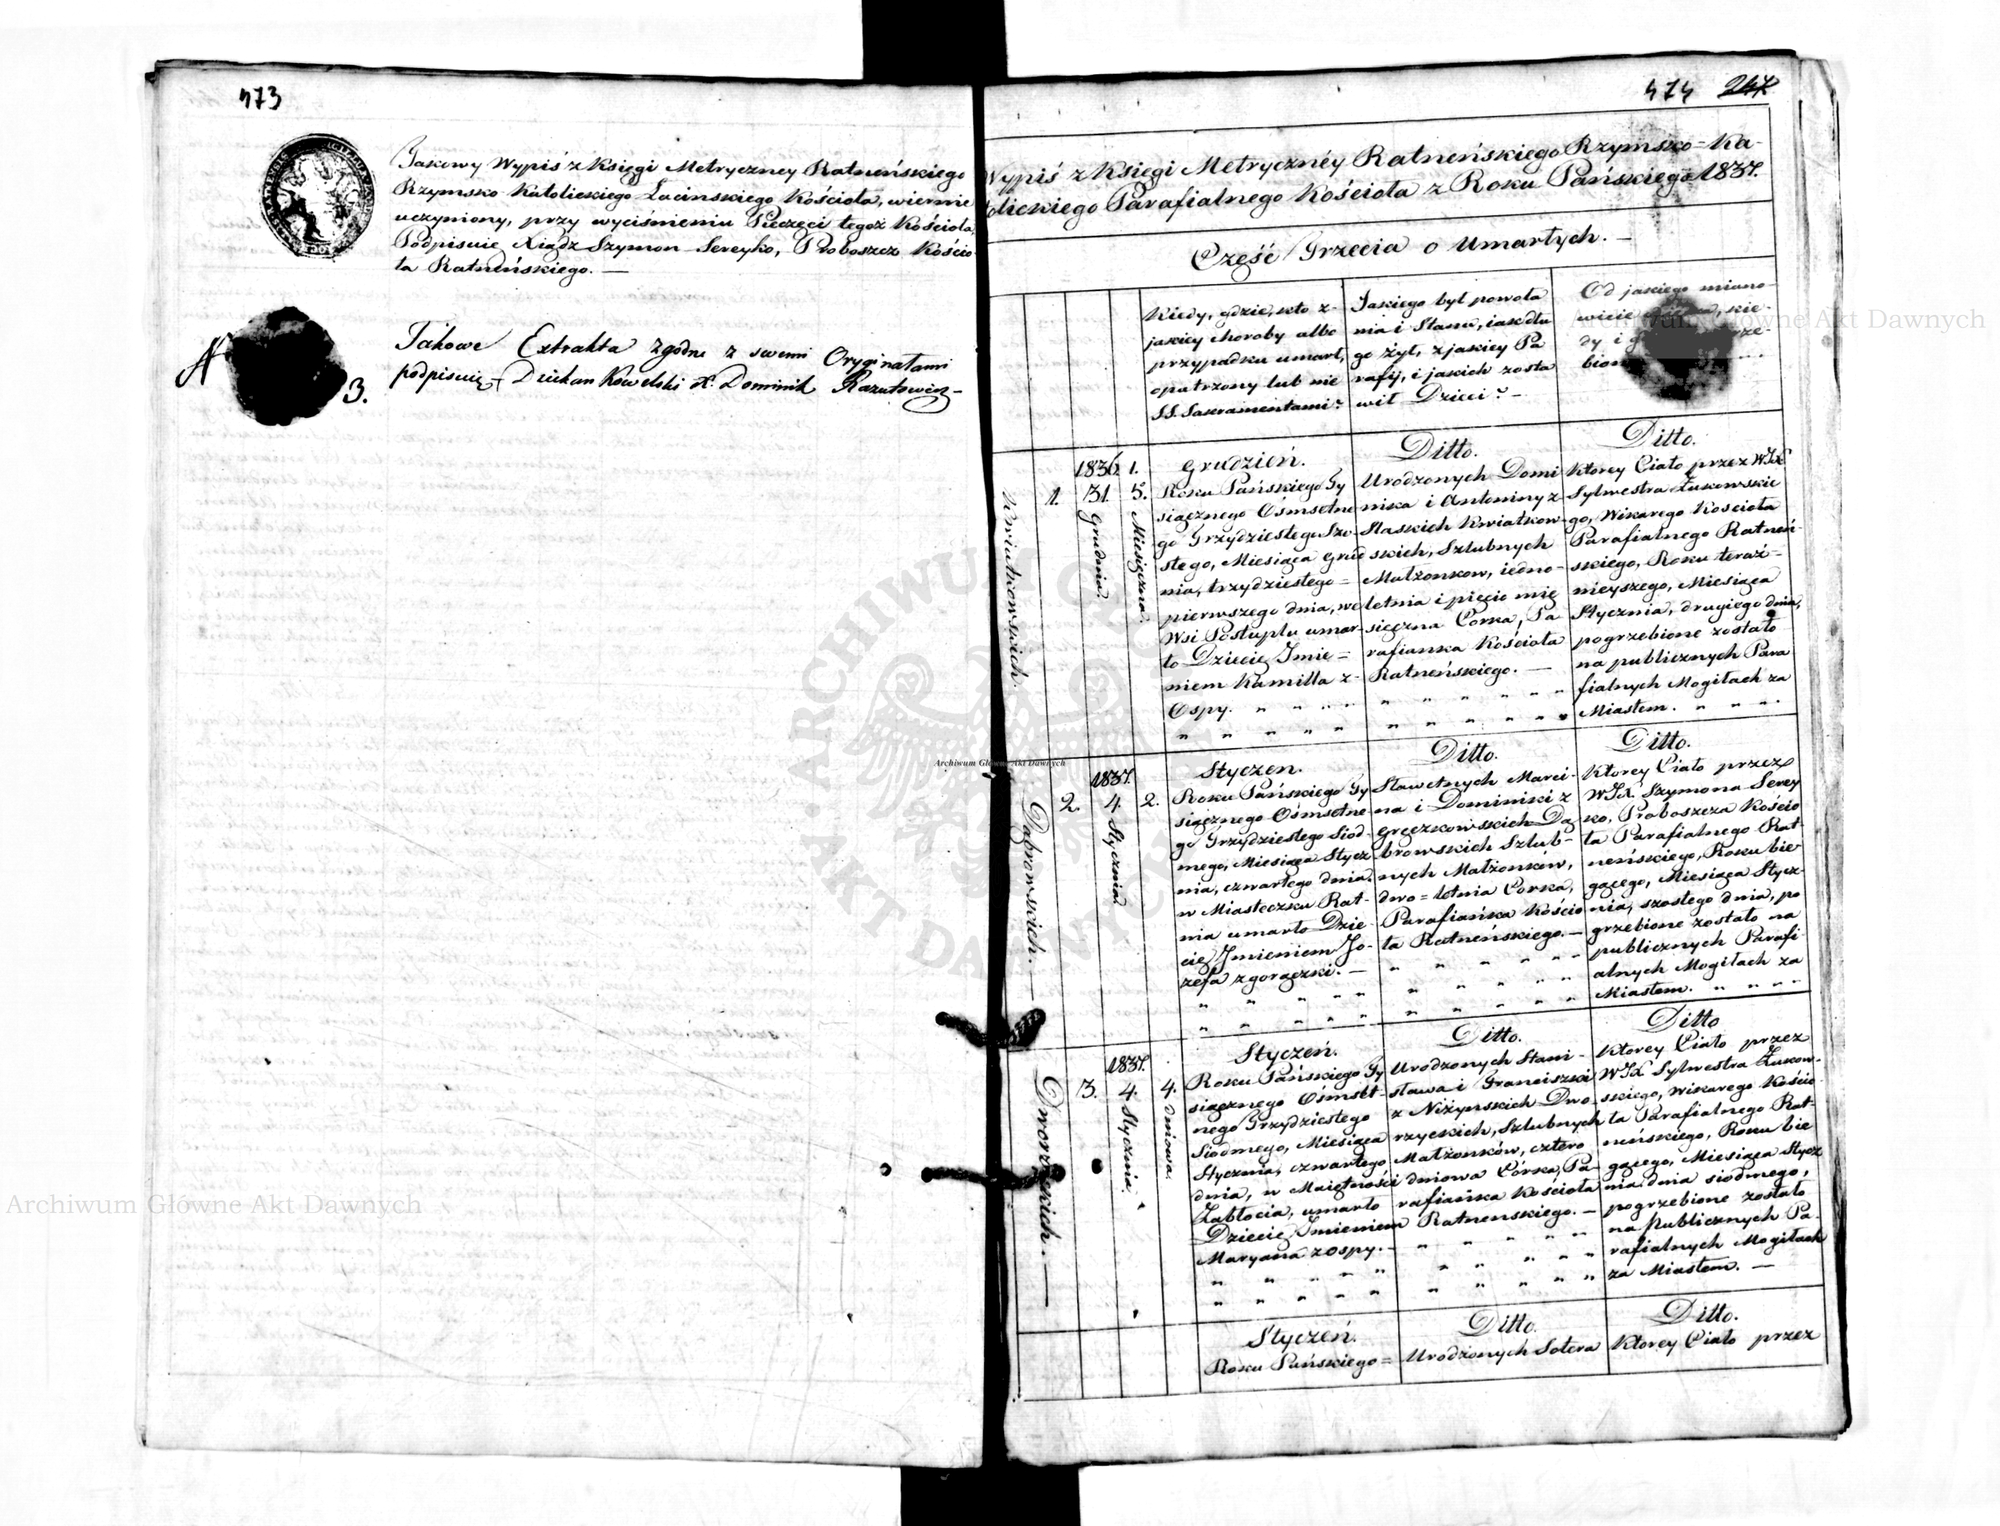 473
Jakowy Wypis z Księgi Metryczney Ratneńskiego
Rzymsko Katolickiego Łacinskiego Kościoła, wiernie
uczyniony, przy wyciśnieniu Pieczęci tegoż Kościoła,
Podpisuię Xiądz Szymon Sereyko, Proboszcz Kościo-
ła Ratneńskiego. —
Takowe Extrakta zgodne z swemi Oryginałami
podpisuię Dziekan Kowelski X. Dominik
3.
474 247
Wypis z Księgi Metrycznéy Ratneńskiego Rzymsko=Ka-
tolickiego Parafialnego Kościoła z Roku Pańskiego 1837.
Część Trzecia o Umarłych. —
Kiedy, gdzie, kto z-
jakiey choroby albo
przypadku umarł,
opatrzony lub nie
SS. Sakramentami?
Jakiego był powoła
nia i Stanu, iak dłu
go żył, z jakiey Pa
rafij, i jakich zosta
wił Dzieci? —
Od jakiego miano
wicie
dy i
Kwiatkowskich.
1.
1836.
31.
Grudnia.
1.
5.
Miesięczna.
Grudzień.
Roku Pańskiego Ty
siącznego Ośmsetne
go Trzydziestego Szo
stego, Miesiąca Grud
nia, trzydziestego=
pierwszego dnia, we
Wsi Postuplu umar-
ło Dziecię Imie=
niem Kamilla z-
Ospy.
Ditto.
Urodzonych Domi
nika i Antoniny z
Staskich Kwiatkow-
skich, Szlubnych
Małżonkow, iedno-
letnia i pięcio mię
sięczna Corka, Pa
rafianka Kościoła
Ratneńskiego. —
Ditto.
Ktorey Ciało przez WJX
Sylwestra Żukowskie
go, Wikarego Kościoła
Parafialnego Ratneń
skiego, Roku teraź-
nieyszego, Miesiąca
Stycznia, drugiego dnia,
pogrzebione zostało
na publicznych Para
fialnych Mogiłach za
Miastem.
Dąbrowskich. —
2.
1837.
4.
Stycznia
2.
Styczen.
Roku Pańskiego Ty
siącznego Ośmsetne
go Trzydziestego Siod-
mego, Miesiąca Stycz
nia, czwartego dnia,
w Miasteczku Rat-
nia umarło Dzie-
cię Imieniem Jo-
zefa z gorączki. —
Ditto.
Sławetnych Marci-
na i Dominiki z
Gręczkowskich Dą
browskich Szlub-
nych Małżonków,
dwo=letnia Corka,
Parafiańka Kościo
ła Ratneńskiego. —
Ditto.
Ktorey Ciało przez
WJX. Szymona Serey
ko, Proboszcza Kościo
ła Parafialnego Rat
neńskiego, Roku bie
gącego, Miesiąca Stycz-
nia, szostego dnia, po
grzebione zostało na
publicznych Parafi-
alnych Mogiłach za
Miastem.
Dworzyckich. —
3.
1837.
4.
Stycznia.
4.
dniowa.
Styczeń.
Roku Pańskiego Ty
siącznego Ośmset-
nego Trzydziestego
Siodmego, Miesiąca
Stycznia, czwartego
dnia, w Maiętności
Zabłocia, umarło
Dziecię, Imieniem
Maryana z ospy. —
Ditto.
Urodzonych Stani-
sława i Franciszki
z Niżyńskich Dwo-
rzyckich, Szlubnych
Małżonków, cztero
dniowa Córka, Pa-
rafiańka Kościoła
Ratnenskiego. —
Ditto
Ktorey Ciało przez
WJX Sylwestra Żukow-
skiego, Wikarego Kościo
ła Parafialnego Rat-
neńskiego, Roku bie
gącego, Miesiąca Stycz
nia dnia siodmego,
pogrzebione zostało
na Publicznych Pa-
rafialnych Mogiłach
za Miastem. —
Styczeń.
Roku Pańskiego=
Ditto.
Urodzonych Sotera
Ditto.
Ktorey Ciało przez
Archiwum Główne Akt Dawnych
Archiwum Główne Akt Dawnych
Archiwum Główne Akt Dawnych